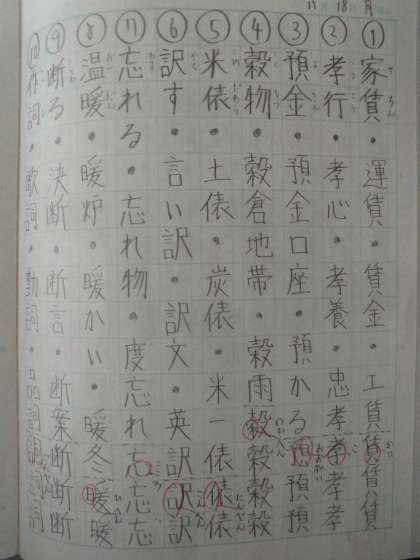 11月18日月
①家賃・運賃・賃金・工賃賃賃
②孝行・孝心・孝養・忠孝孝孝孝
③預金・預金口座・預かる預預預
④穀物・穀倉地帯・穀雨穀穀穀
⑤米俵・土俵・炭俵・米一俵俵俵
⑥訳す・言い訳・訳文・英訳訳訳
⑦忘れる・忘れ物・度忘れ忘忘忘
⑧温暖・暖炉・暖かい・暖冬暖暖
⑨断る・決断・断言・断案断断断
⑩作詞・歌詞・動詞・品詞詞詞詞